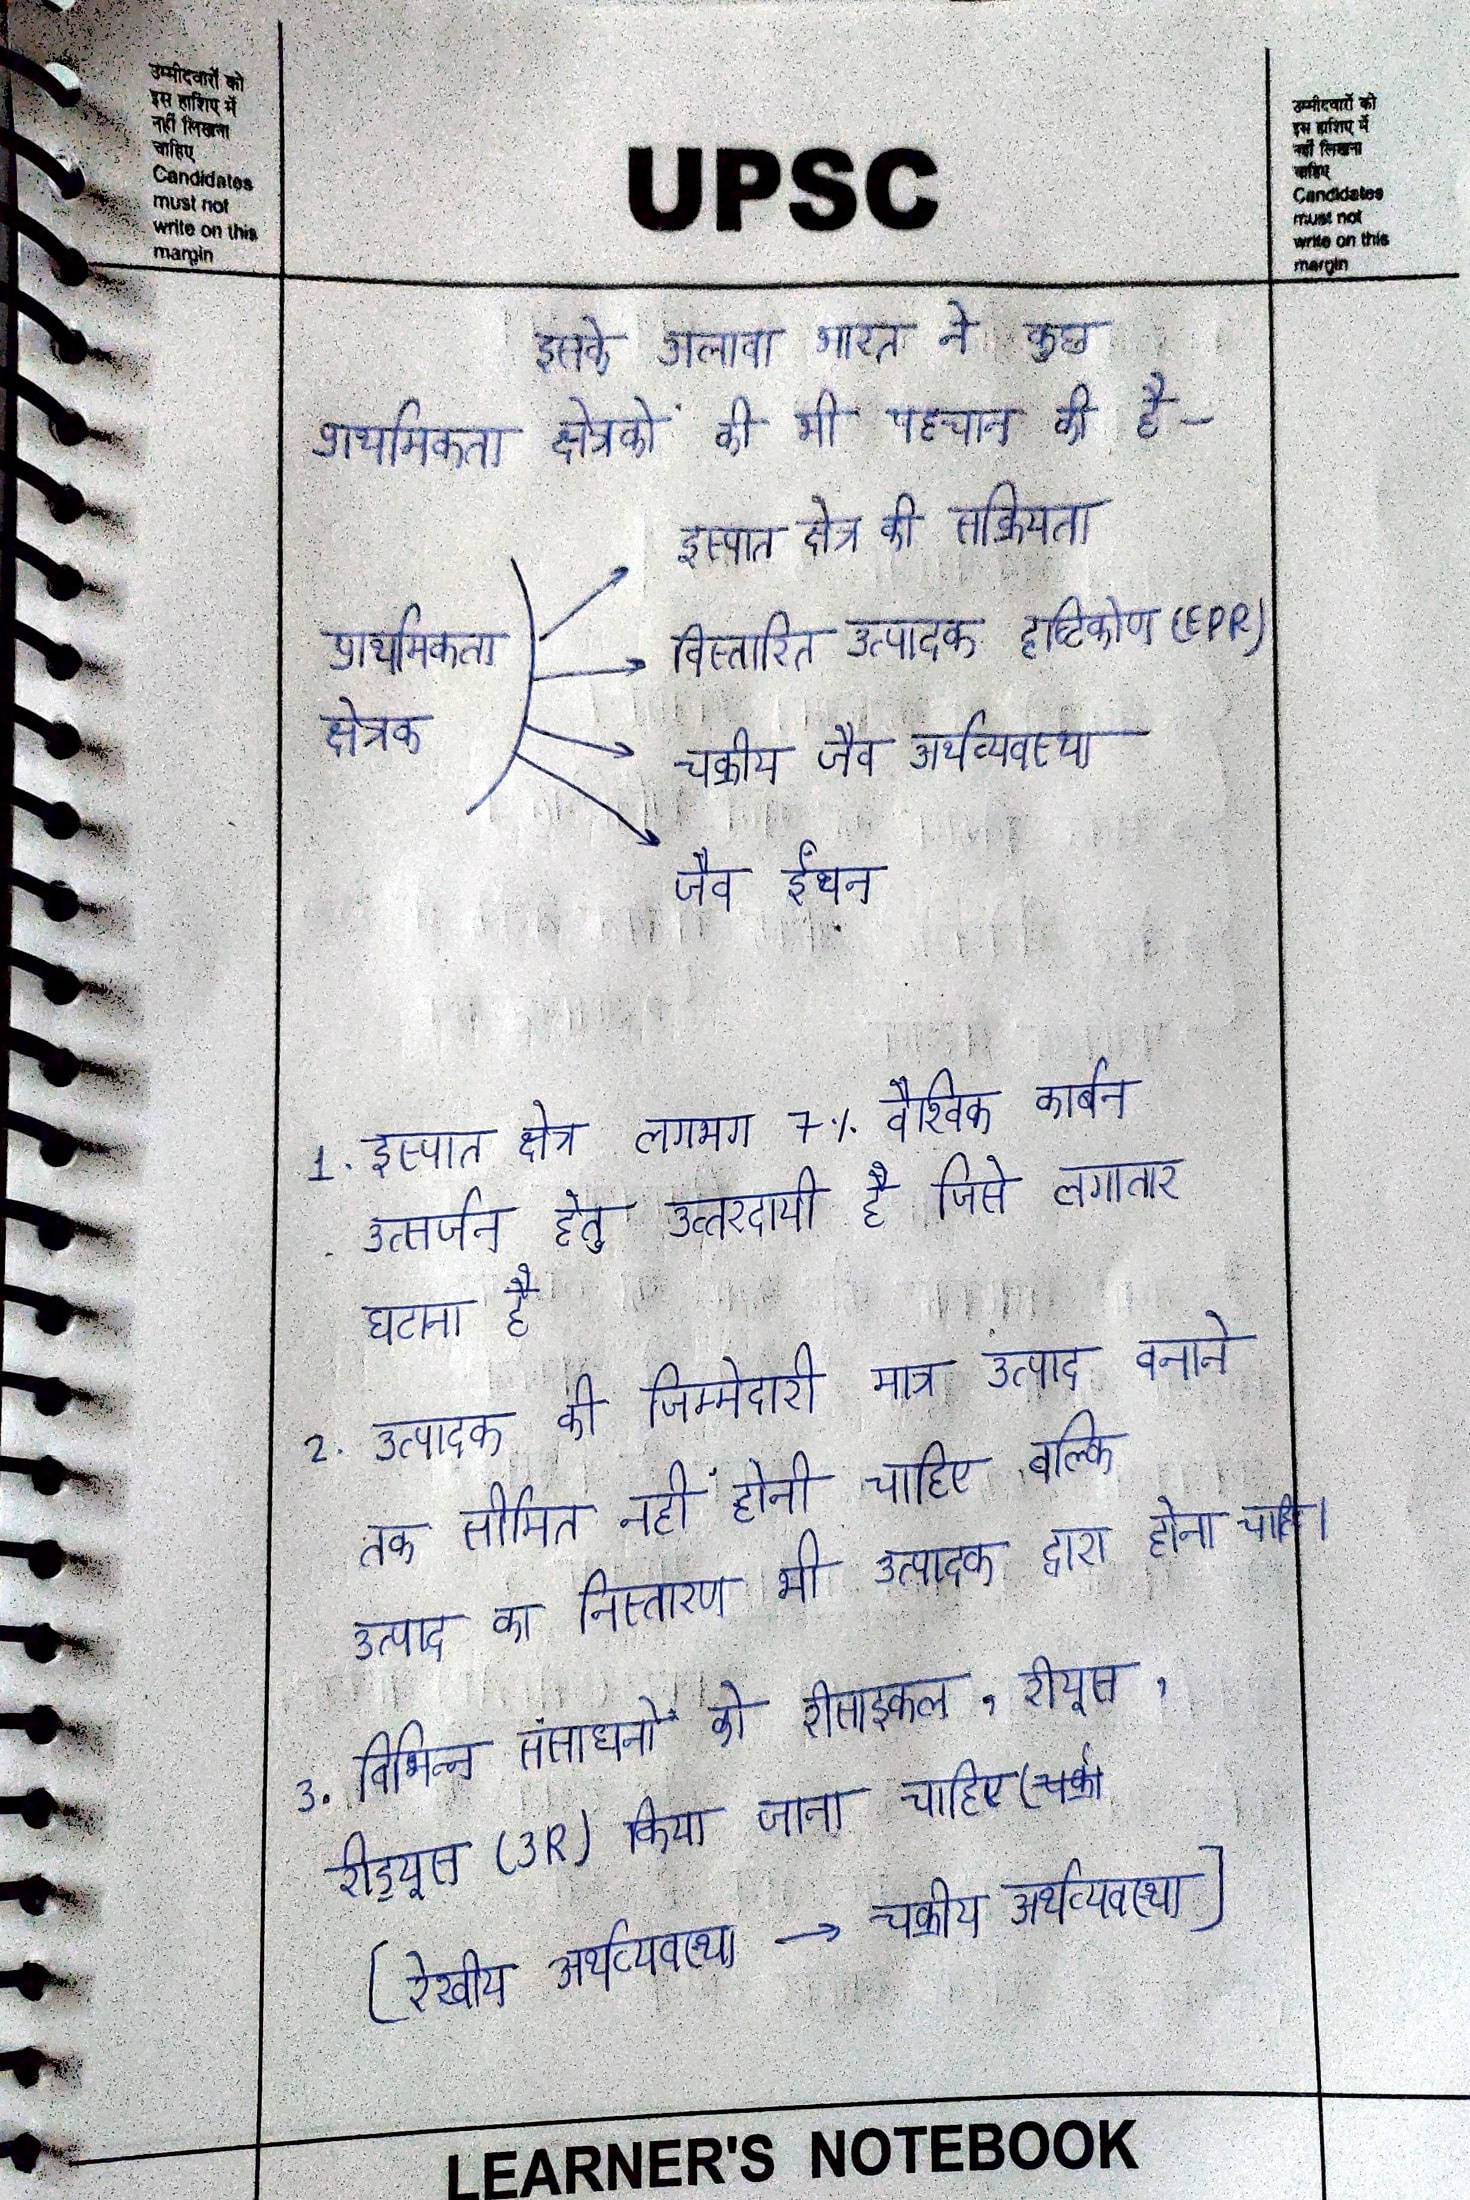 उम्मीदवारों को
इस हाशिए में
नहीं लिखना
चाहिए
Candidates
must not
write on this
margin
UPSC
उम्मीदवारों को
इस हाशिए में
नहीं लिखना
चाहिए
Candidates
must not
write on this
margin
इसके अलावा भारत ने कुछ
प्राथमिकता क्षेत्रकों की भी पहचान की है -
प्राथमिकता
क्षेत्रक
इस्पात क्षेत्र की सक्रियता
विस्तारित उत्पादक दृष्टिकोण (EPR)
चक्रीय जैव अर्थव्यवस्था
जैव ईंधन
1. इस्पात क्षेत्र लगभग 7% वैश्विक कार्बन
उत्सर्जन हेतु उत्तरदायी है जिसे लगातार
घटाना है
2. उत्पादक की जिम्मेदारी मात्र उत्पाद बनाने
तक सीमित नहीं होनी चाहिए बल्कि
उत्पाद का निस्तारण भी उत्पादक द्वारा होना चाहि।
3. विभिन्न संसाधनों को रीसाइकल, रीयूस,
रीड्यूस (3R) किया जाना चाहिए (चक्री
[रेखीय अर्थव्यवस्था → चक्रीय अर्थव्यवस्था]
LEARNER'S NOTEBOOK